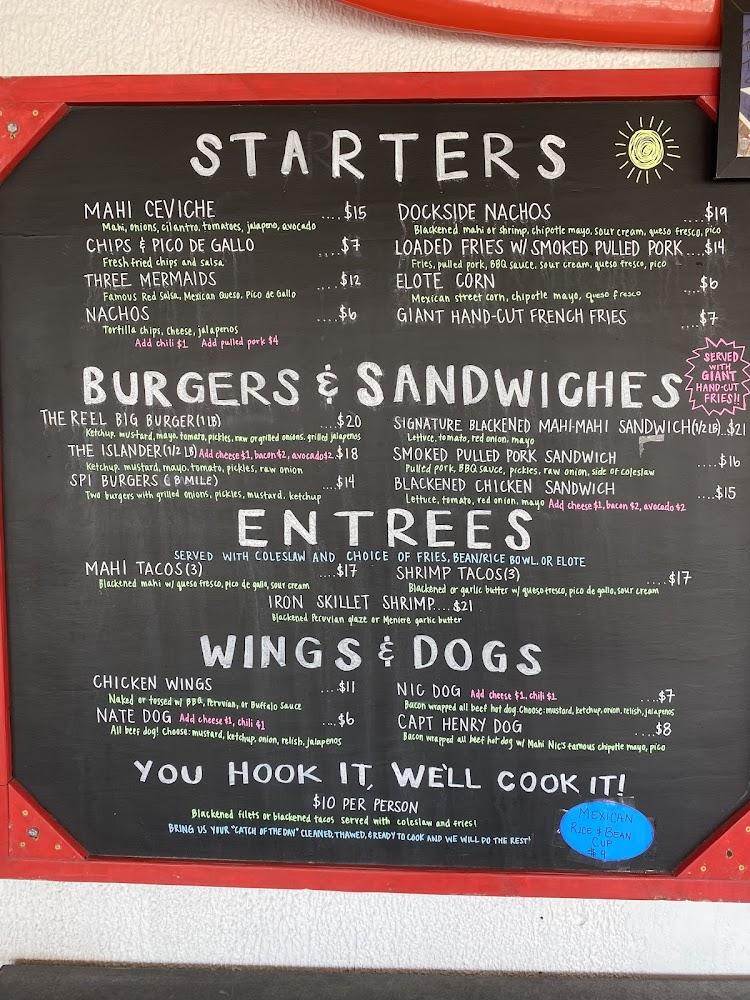 STARTERS
MAHI CEVICHE ....$15
Mahi, onions, cilantro, tomatoes, jalapeno, avocado
CHIPS & PICO DE GALLO ....$7
Fresh fried chips and salsa
THREE MERMAIDS ....$12
Famous Red Salsa, Mexican Queso, Pico de Gallo
NACHOS ....$6
Tortilla chips, cheese, jalapenos
Add chili $1 Add pulled pork $4
DOCKSIDE NACHOS ....$19
Blackened mahi or shrimp, chipotle mayo, sour cream, queso fresco, pico
LOADED FRIES W/ SMOKED PULLED PORK....$14
Fries, pulled pork, BBQ sauce, sour cream, queso fresco, pico
ELOTE CORN ....$6
Mexican street corn, chipotle mayo, queso fresco
GIANT HAND-CUT FRENCH FRIES ....$7
BURGERS & SANDWICHES
SERVED
WITH
GIANT
HAND-CUT
FRIES!!
THE REEL BIG BURGER (1 LB) ....$20
Ketchup, mustard, mayo, tomato, pickles, raw or grilled onions, grilled jalapenos
THE ISLANDER (1/2 LB) Add cheese $1, bacon $2, avocado $2 ..$18
Ketchup, mustard, mayo, tomato, pickles, raw onion
SPI BURGERS (8 MILE) ....$14
Two burgers with grilled onions, pickles, mustard, ketchup
SIGNATURE BLACKENED MAHI-MAHI SANDWICH (1/2 LB)..$21
Lettuce, tomato, red onion, mayo
SMOKED PULLED PORK SANDWICH ....$16
Pulled pork, BBQ sauce, pickles, raw onion, side of coleslaw
BLACKENED CHICKEN SANDWICH ....$15
Lettuce, tomato, red onion, mayo Add cheese $1, bacon $2, avocado $2
ENTREES
SERVED WITH COLESLAW AND CHOICE OF FRIES, BEAN/RICE BOWL, OR ELOTE
MAHI TACOS (3) ....$17
Blackened mahi w/ queso fresco, pico de gallo, sour cream
SHRIMP TACOS (3) ....$17
Blackened or garlic butter w/ queso fresco, pico de gallo, sour cream
IRON SKILLET SHRIMP....$21
Blackened Peruvian glaze or Meniere garlic butter
WINGS & DOGS
CHICKEN WINGS ....$11
Naked or tossed w/ BBQ, Peruvian, or Buffalo Sauce
NATE DOG Add cheese $1, chili $1 ....$6
All beef dog! Choose: mustard, ketchup, onion, relish, jalapenos
NIC DOG Add cheese $1, chili $1 ....$7
Bacon wrapped all beef hot dog. Choose: mustard, ketchup, onion, relish, jalapenos
CAPT HENRY DOG ....$8
Bacon wrapped all beef hot dog w/ Mahi Nic's famous chipotle mayo, pico
YOU HOOK IT, WE'LL COOK IT!
$10 PER PERSON
Blackened filets or blackened tacos served with coleslaw and fries!
BRING US YOUR "CATCH OF THE DAY" CLEANED, THAWED, & READY TO COOK AND WE WILL DO THE REST!
MEXICAN
RICE & BEAN
CUP
$4